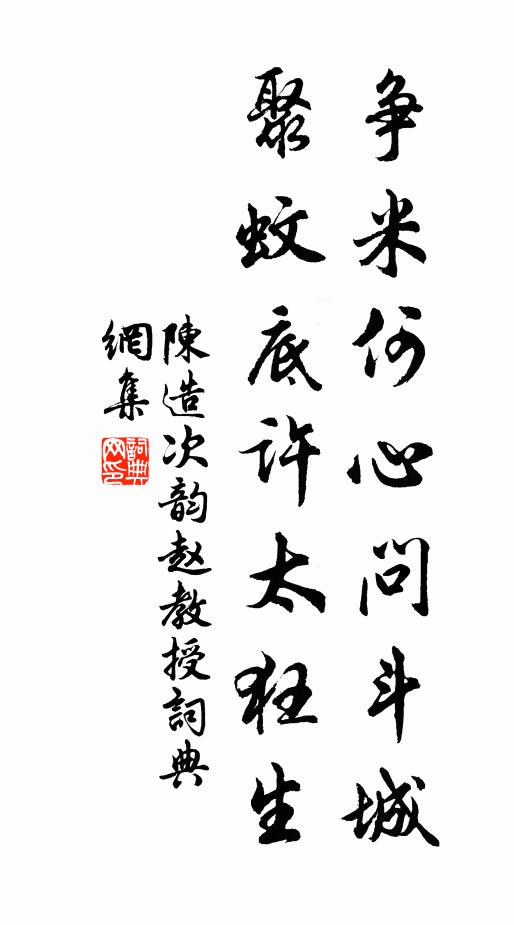 争米何心问斗城
聚蚊底许太狂生
陳造次韵赵教授詞典
網集
詞典
网印